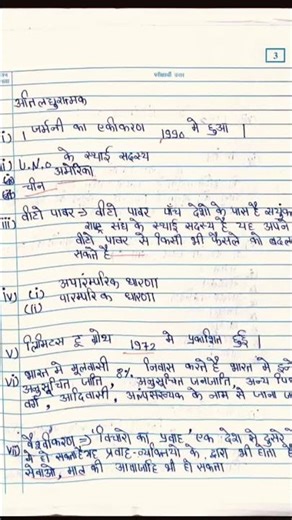 3
परीक्षार्थी उत्तर
अतिलघुरात्मक
i) 1 जर्मनी का एकीकरण 1990 में हुआ |
ii) U.N.O के स्थाई सदस्य
(i) अमेरिका
(ii) चीन
iii) वीटो पावर ⇒ वीटो पावर पाँच देशो के पास है संयुक्त
राष्ट्र संघ के स्थाई सदस्य है यह अपने
वीटो पावर से किसी भी फैसले को बदल
सकते है
iv) (i) अपारम्परिक धारणा
(ii) पारम्परिक धारणा
v) लिमिटस टू ग्रोथ 1972 में प्रकाशित हुई |
vi) भारत में मूलवासी 8% निवास करते है भारत में इन्हे
अनुसूचित जाति, अनुसूचित जनजाति, अन्य पिछ
वर्ग, आदिवासी, अल्पसंख्यक के नाम से जाना जा
vii) वैश्वीकरण ⇒ विचारो का प्रवाह एक देश से दुसरे
में हो सकता है यह प्रवाह व्यक्तियो के द्वारा भी होता है
सेवाओ, माल की आवाजाहि भी हो सकता